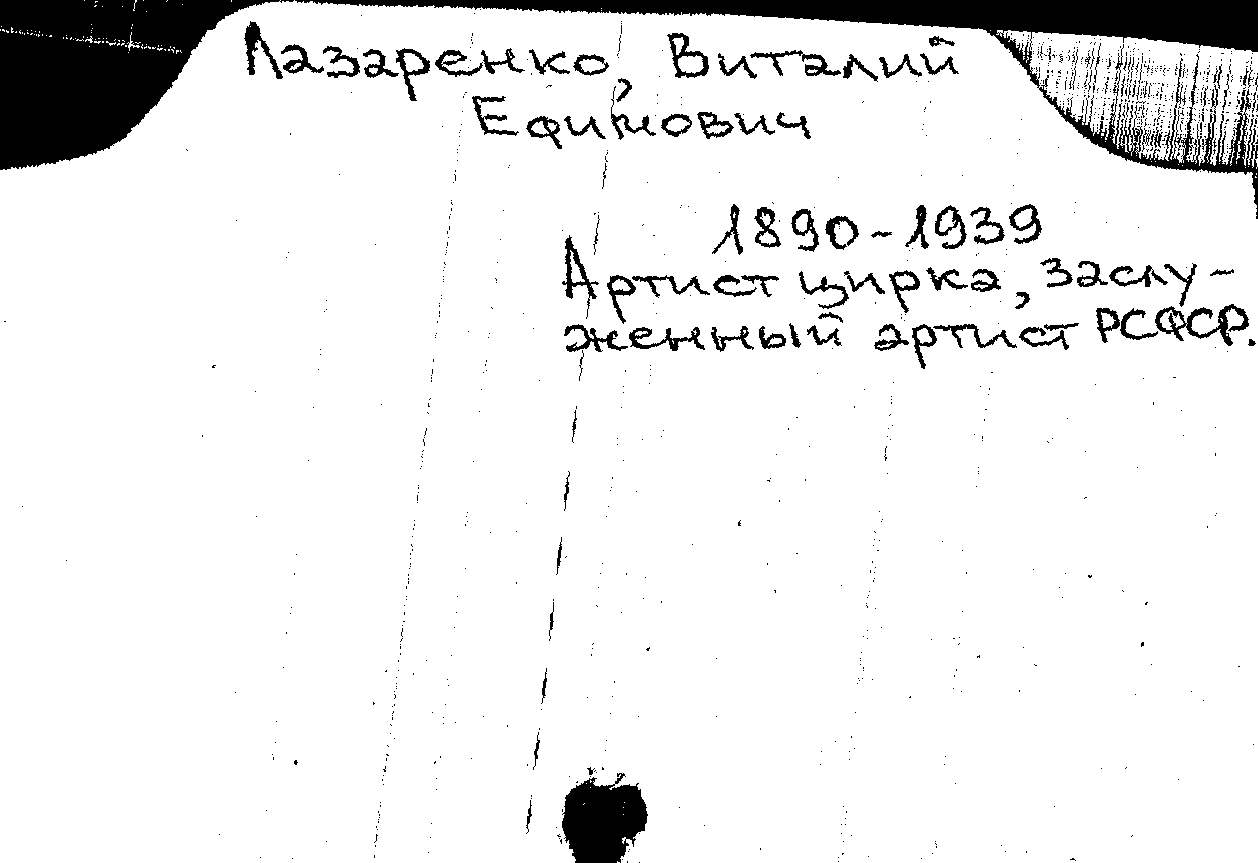 Лазаренко, Виталий
Ефимович
1890-1939
Артист цирка, заслу-
женный артист РСФСР.